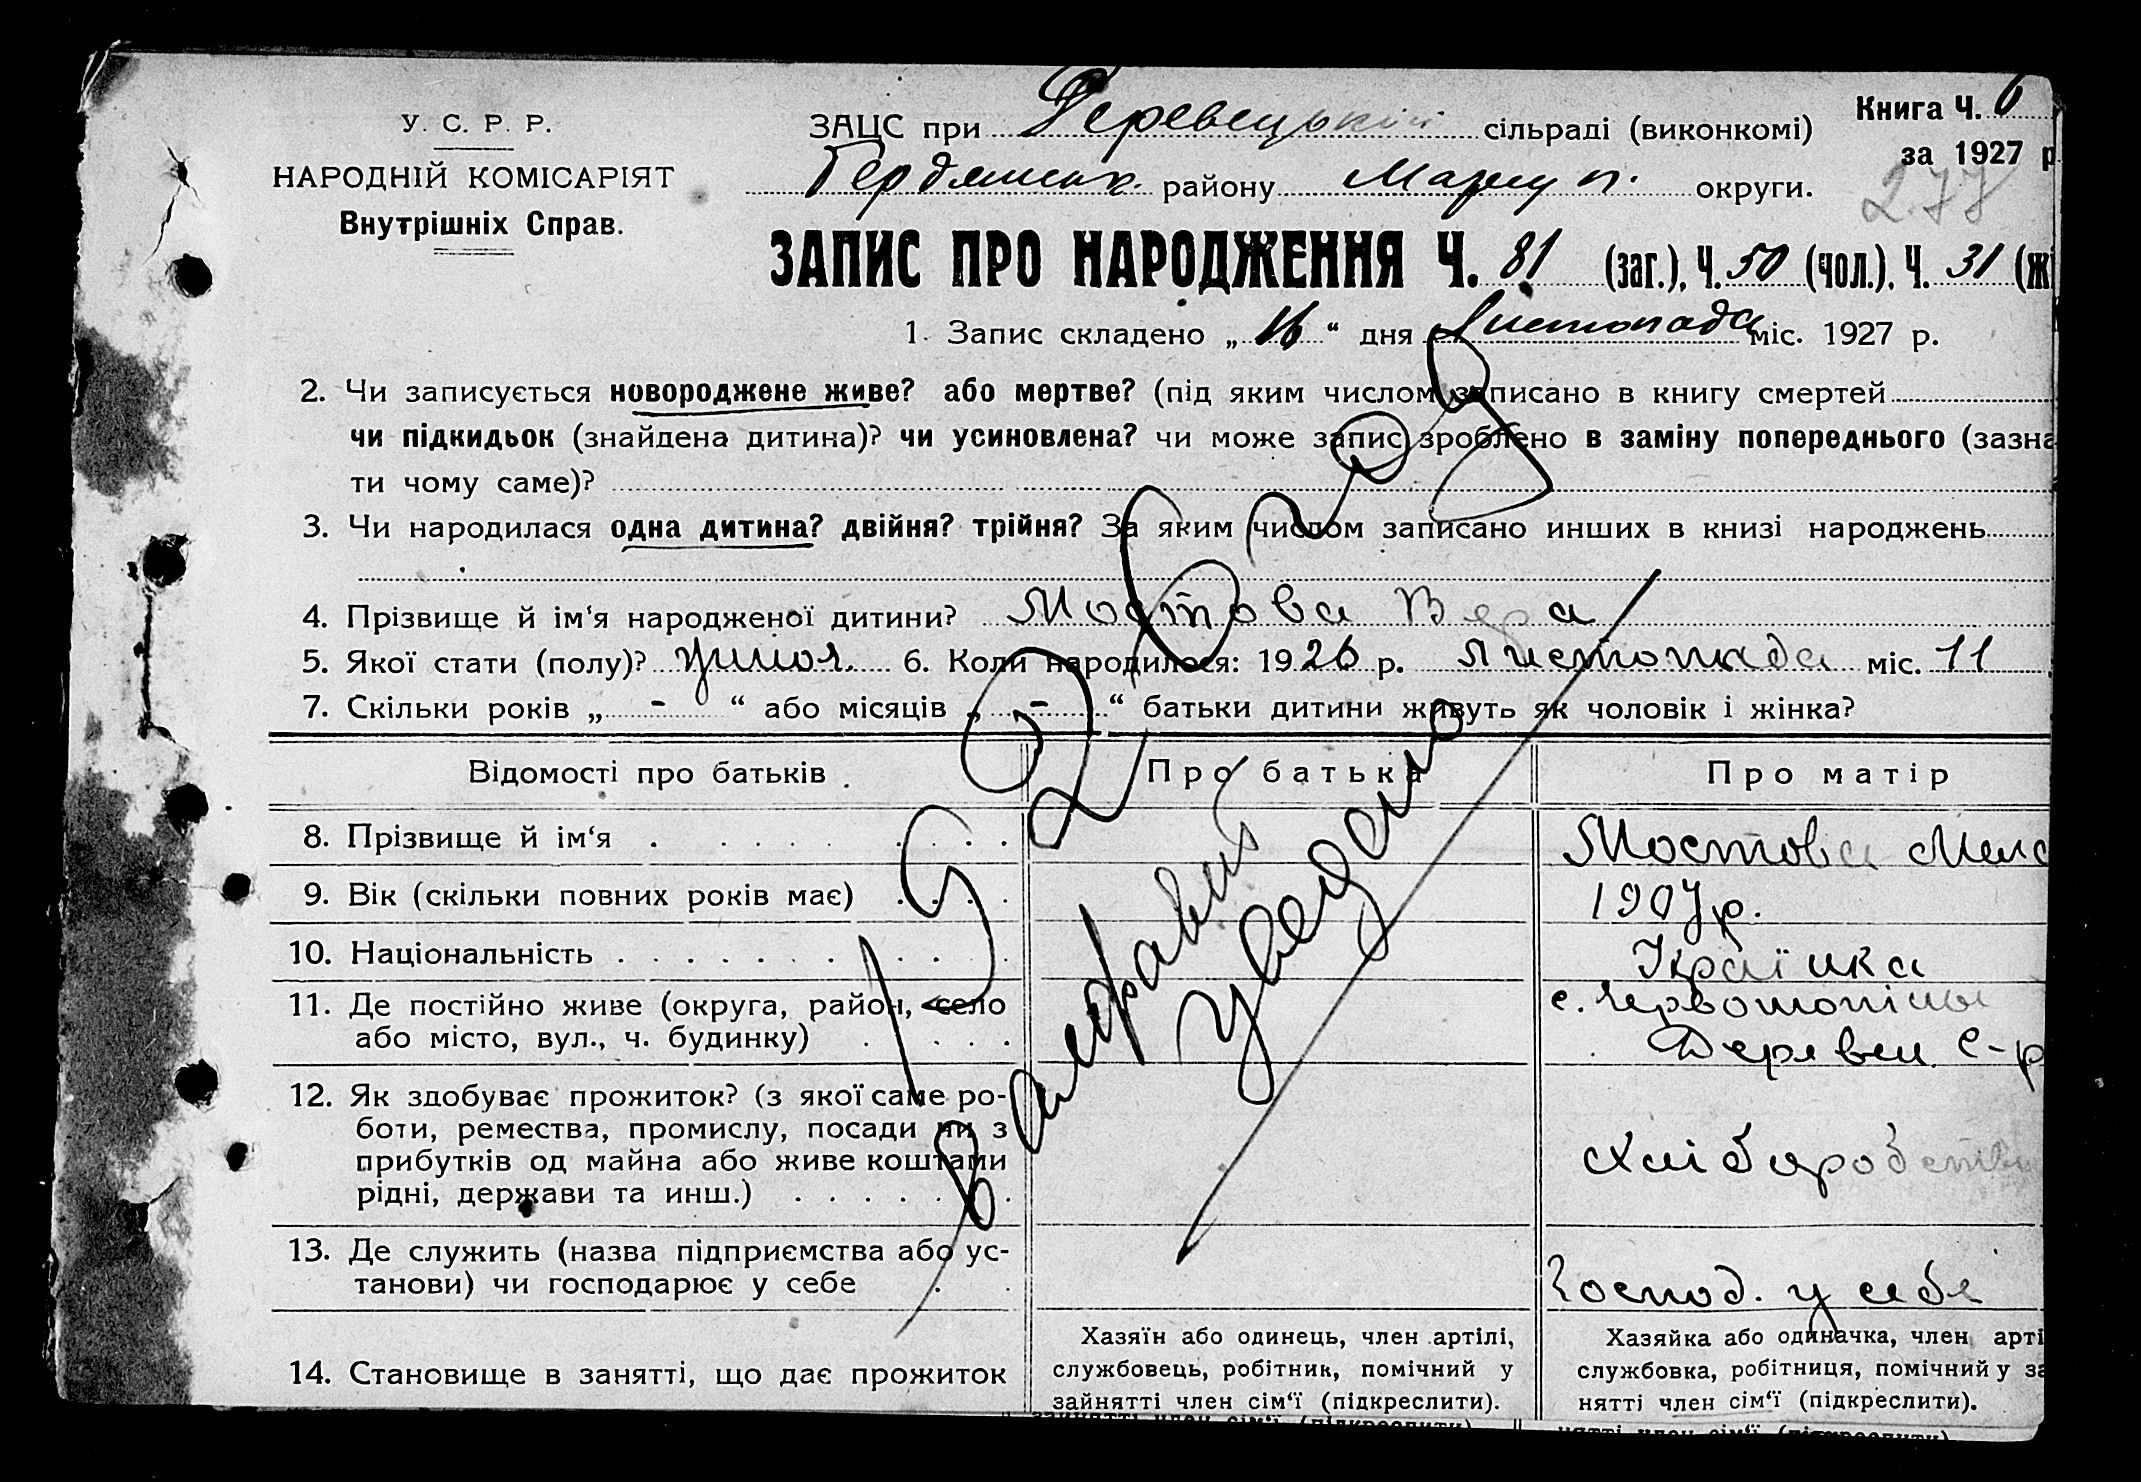 У. С. Р. Р.
НАРОДНІЙ КОМІСАРІЯТ
Внутрішніх Справ.
Книга Ч. 6
за 1927 р
277
ЗАЦС при Деревецькій сільраді (виконкомі)
Бердянськ. району Маріуп. округи.
ЗАПИС ПРО НАРОДЖЕННЯ Ч. 81 (заг.), Ч. 50 (чол.). Ч. 31 (жі
1. Запис складено „ 16 “ дня Листопада міс. 1927 р.
2. Чи записується новороджене живе? або мертве? (під яким числом записано в книгу смертей
чи підкидьок (знайдена дитина)? чи усиновлена? чи може запис зроблено в заміну попереднього (зазна
ти чому саме)?
3. Чи народилася одна дитина? двійня? трійня? За яким числом записано инших в книзі народжень
4. Прізвище й ім‘я народженої дитини? Мостова Вера
5. Якої стати (полу)? 6. Коли народилося: 1926 р. Листопада міс. 11
7. Скільки років „ - “ або місяців „ - “ батьки дитини живуть як чоловік і жінка?
Відомості про батьків
Про батька
Про матір
8. Прізвище й ім‘я
Мостова
9. Вік (скільки повних років має)
1907 р.
10. Національність
Україика
11. Де постійно живе (округа, район, село
або місто, вул., ч. будинку)
с.
12. Як здобуває прожиток? (з якої саме ро-
боти, ремества, промислу, посади чи з
прибутків од майна або живе коштами
рідні, держави та инш.)
13. Де служить (назва підприємства або ус-
танови) чи господарює у себе
Господ. у себе
14. Становище в занятті, що дає прожиток
Хазяїн або одинець, член артілі,
службовець, робітник, помічний у
зайнятті член сім‘ї (підкреслити).
Хазяйка або одиначка, член арті
службовка, робітниця, помічний у за
нятті член сім‘ї (підкреслити).